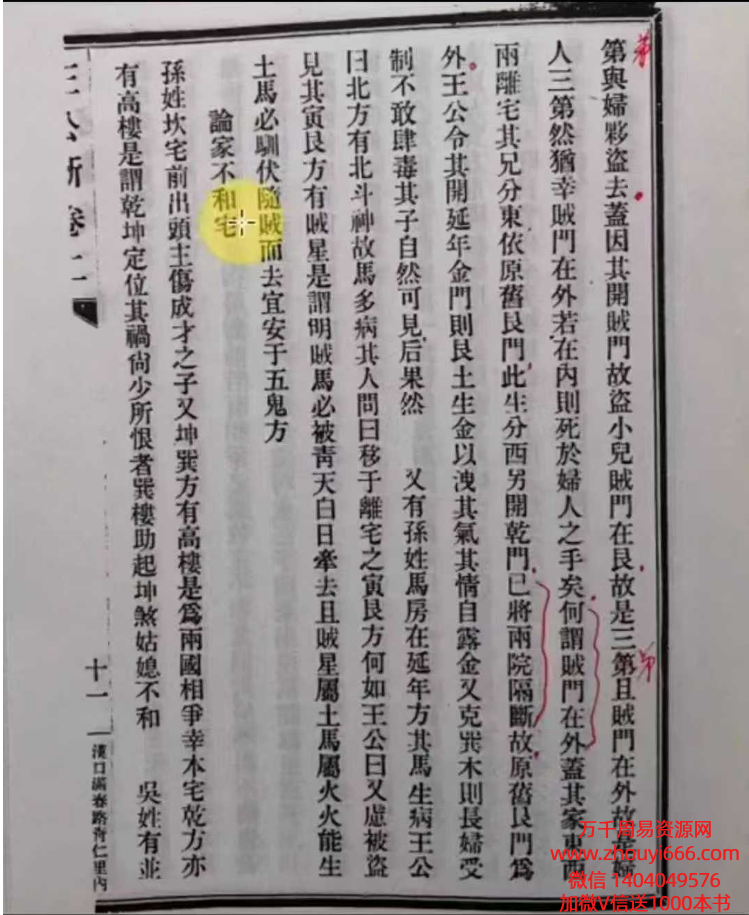 第與婦夥盜去蓋因其開賊門故盜小兒賊門在艮故是三第且賊門在外故是婦
人三第然猶幸賊門在外若在內則死於婦人之手矣何謂賊門在外蓋其家東西
兩離宅其兄分東依原舊艮門此生分西另開乾門已將兩院隔斷故原舊艮門爲
外王公令其開延年金門則艮土生金以洩其氣其情自露金又克巽木則長婦受
制不敢肆毒其子自然可見后果然 又有孫姓馬房在延年方其馬生病王公
曰北方有北斗神故馬多病其人問曰移于離宅之寅艮方何如王公曰又慮被盜
見其寅艮方有賊星是謂明賊馬必被靑天白日牽去且賊星屬土馬屬火火能生
土馬必馴伏隨賊而去宜安于五鬼方
論家不和宅
孫姓坎宅前出頭主傷成才之子又坤巽方有高樓是爲兩國相爭幸本宅乾方亦
有高樓是謂乾坤定位其禍尙少所恨者巽樓助起坤煞姑媳不和 吳姓有並
王公斷卷二
十一
漢口滿春路靑仁里內
弟
弟
万千周易资源网
www.zhouyi666.com
微信 1404049576
加微V信送1000本书